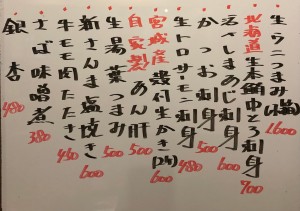 生うにつまみ(小箱) 1600
北海道生本鮪中とろ刺身 900
活〆しまあじ刺身 600
かつお刺身 500
生トロサーモン刺身 480
宮城産殻付生かき(2ヶ) 600
自家製あん肝 500
生湯葉つまみ 500
新さんま塩焼き 600
牛モモ肉たたき 450
さば味噌煮 380
銀杏 480